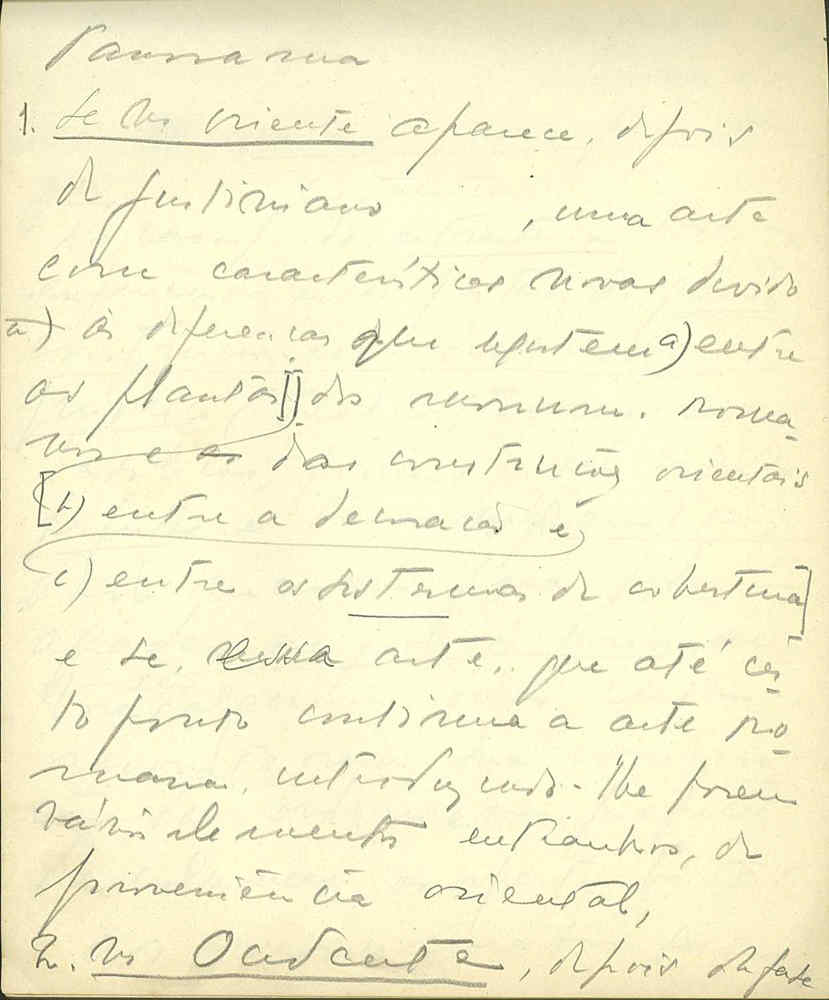 Panorama
1. Se no oriente aparece, depois
de Justiniano , uma arte
com características novas devido
a) às diferenças que existem a) entre
as plantas [] dos monum. roma-
nos e as das construções orientais
[b) entre a decoração e
c) entre os sistemas de cobertura]
e se, nessa arte, que até cer-
to ponto continua a arte ro-
mana, introduzindo-lhe porém
vários elementos extranhos, de
proveniência oriental,
2. no Ocidente, depois